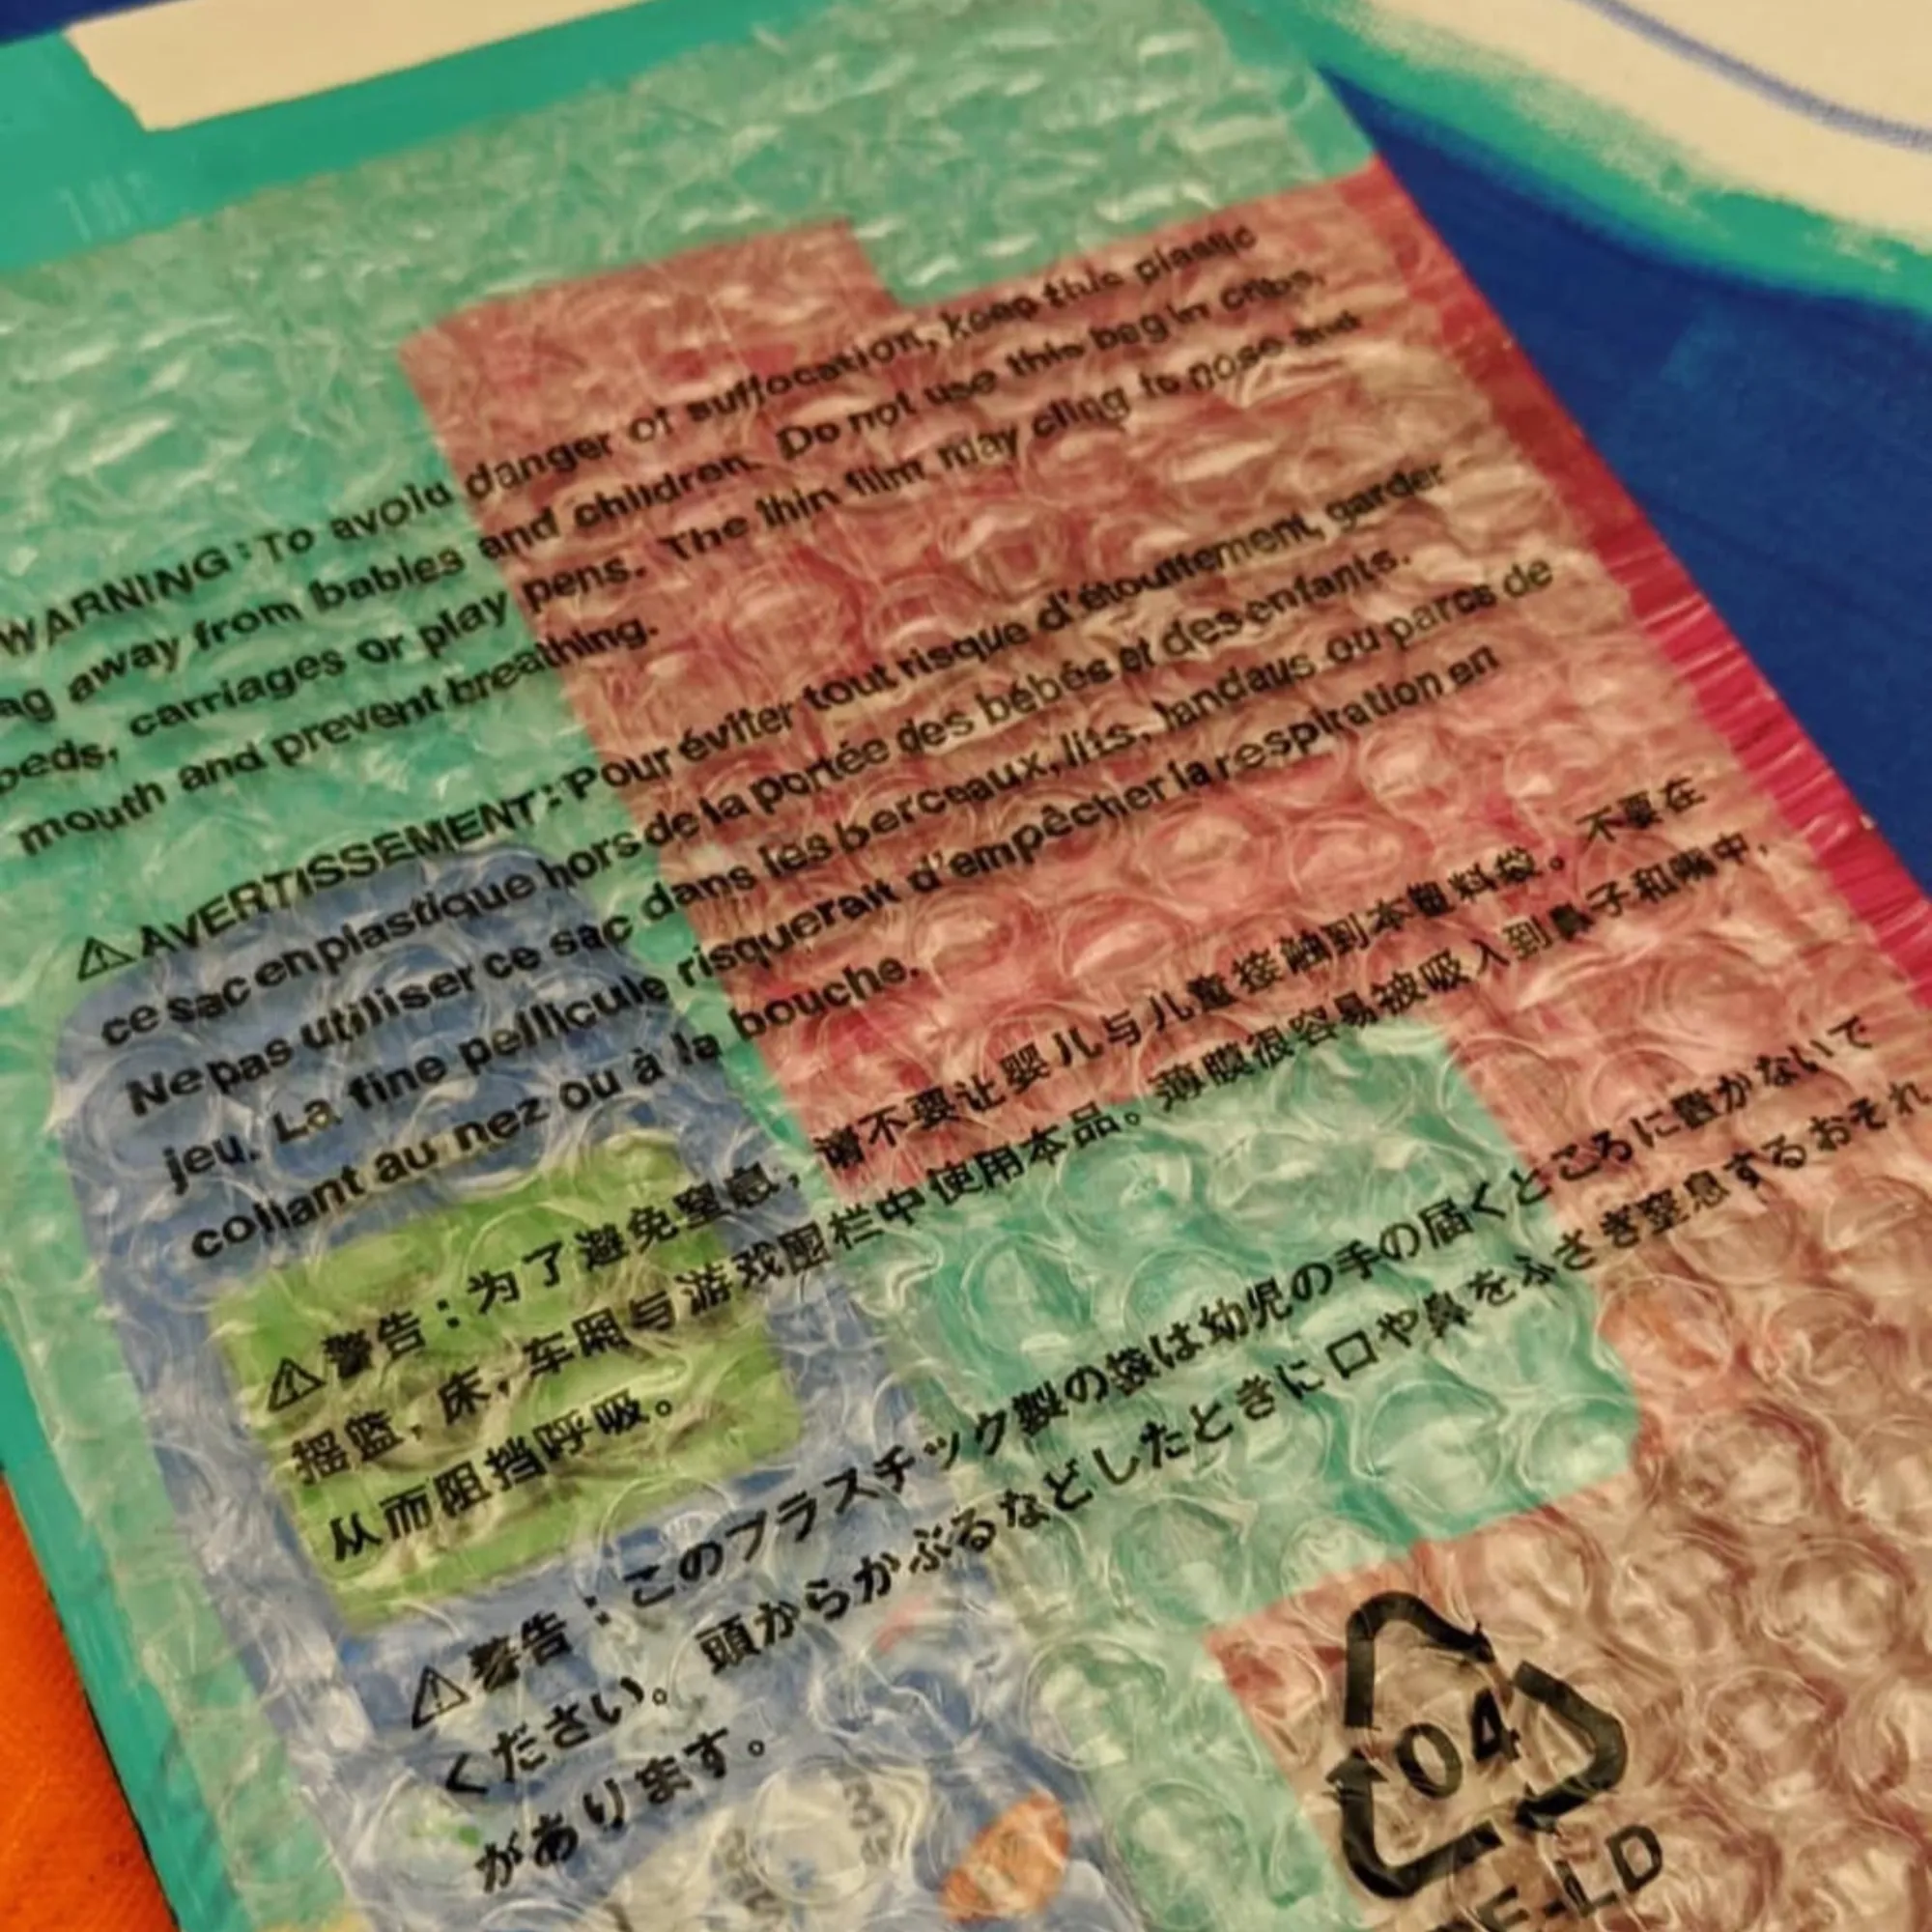 WARNING:To avoid danger of suffocation, keep this plastic
ag away from babies and children. Do not use this bag in cribs,
beds, carriages or play pens. The thin film may cling to nose and
mouth and prevent breathing.
⚠AVERTISSEMENT:Pour éviter tout risque d'étouffement, garder
ce sac en plastique hors de la portée des bébés et des enfants.
Ne pas utiliser ce sac dans les berceaux, lits, landaus ou parcs de
jeu. La fine pellicule risquerait d'empêcher la respiration en
collant au nez ou à la bouche.
⚠警告：为了避免窒息，请不要让婴儿与儿童接触到本塑料袋。不要在
摇篮，床，车厢与游戏围栏中使用本品。薄膜很容易被吸入到鼻子和嘴中，
从而阻挡呼吸。
⚠警告：このプラスチック製の袋は幼児の手の届くところに置かないで
ください。頭からかぶるなどしたときに口や鼻をふさぎ窒息するおそれ
があります。
04
PE-LD